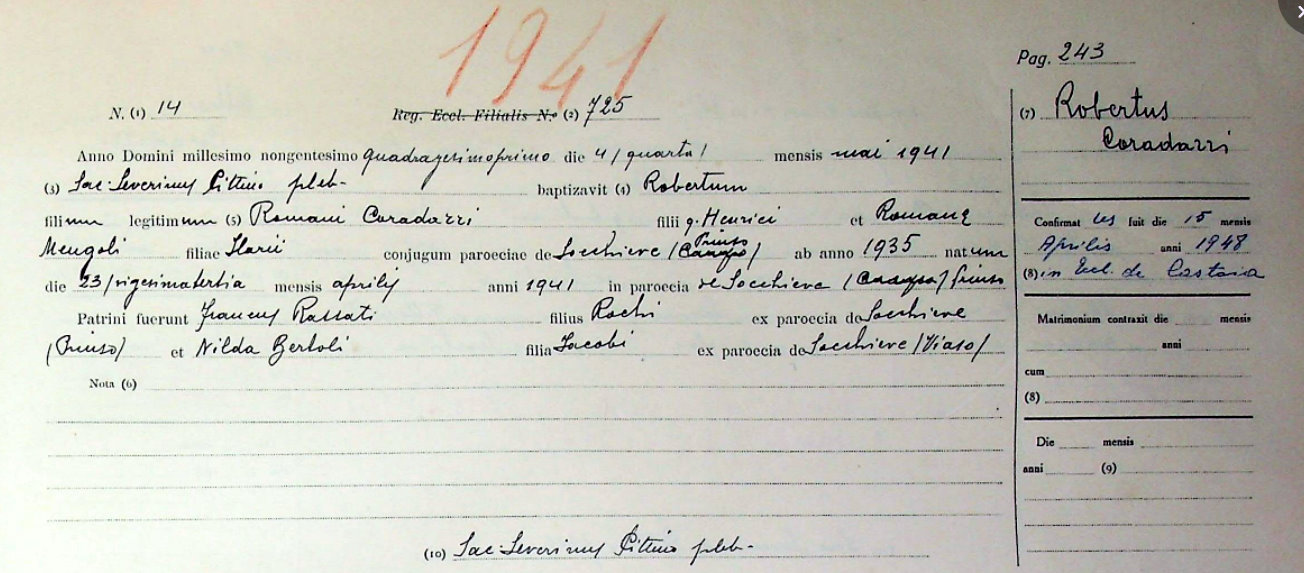 1941
Pag. 243
N. (1) 14 Reg. Eccl. Filialis N.o (2) 725
(7) Robertus
Coradazzi
Anno Domini millesimo nongentesimo quadragesimoprimo die 4/quarta/ mensis maii 1941
(3) Sac. Severinus Pittino pleb. baptizavit (4) Robertum
filium legitimum (5) Romani Coradazzi filii q. Henrici et Romanae
Mengoli filiae Ilarii conjugum paroeciae de Socchieve / Priuso / ab anno 1935 natum
die 23/vigesimatertia mensis aprilis anni 1941 in paroecia de Socchieve / Priuso
Patrini fuerunt Rassati filius Rochi ex paroecia de Socchieve
/Priuso/ et Nilda Bertoli filia Jacobi ex paroecia de Socchieve /Viaso/
Nota (6)
(10) Sac. Severinus Pittino pleb.
Confirmatus fuit die 15 mensis
Aprilis anni 1948
(8) in Eccl. de Castoia
Matrimonium contraxit die mensis
anni
cum
(8)
Die mensis
anni (9)